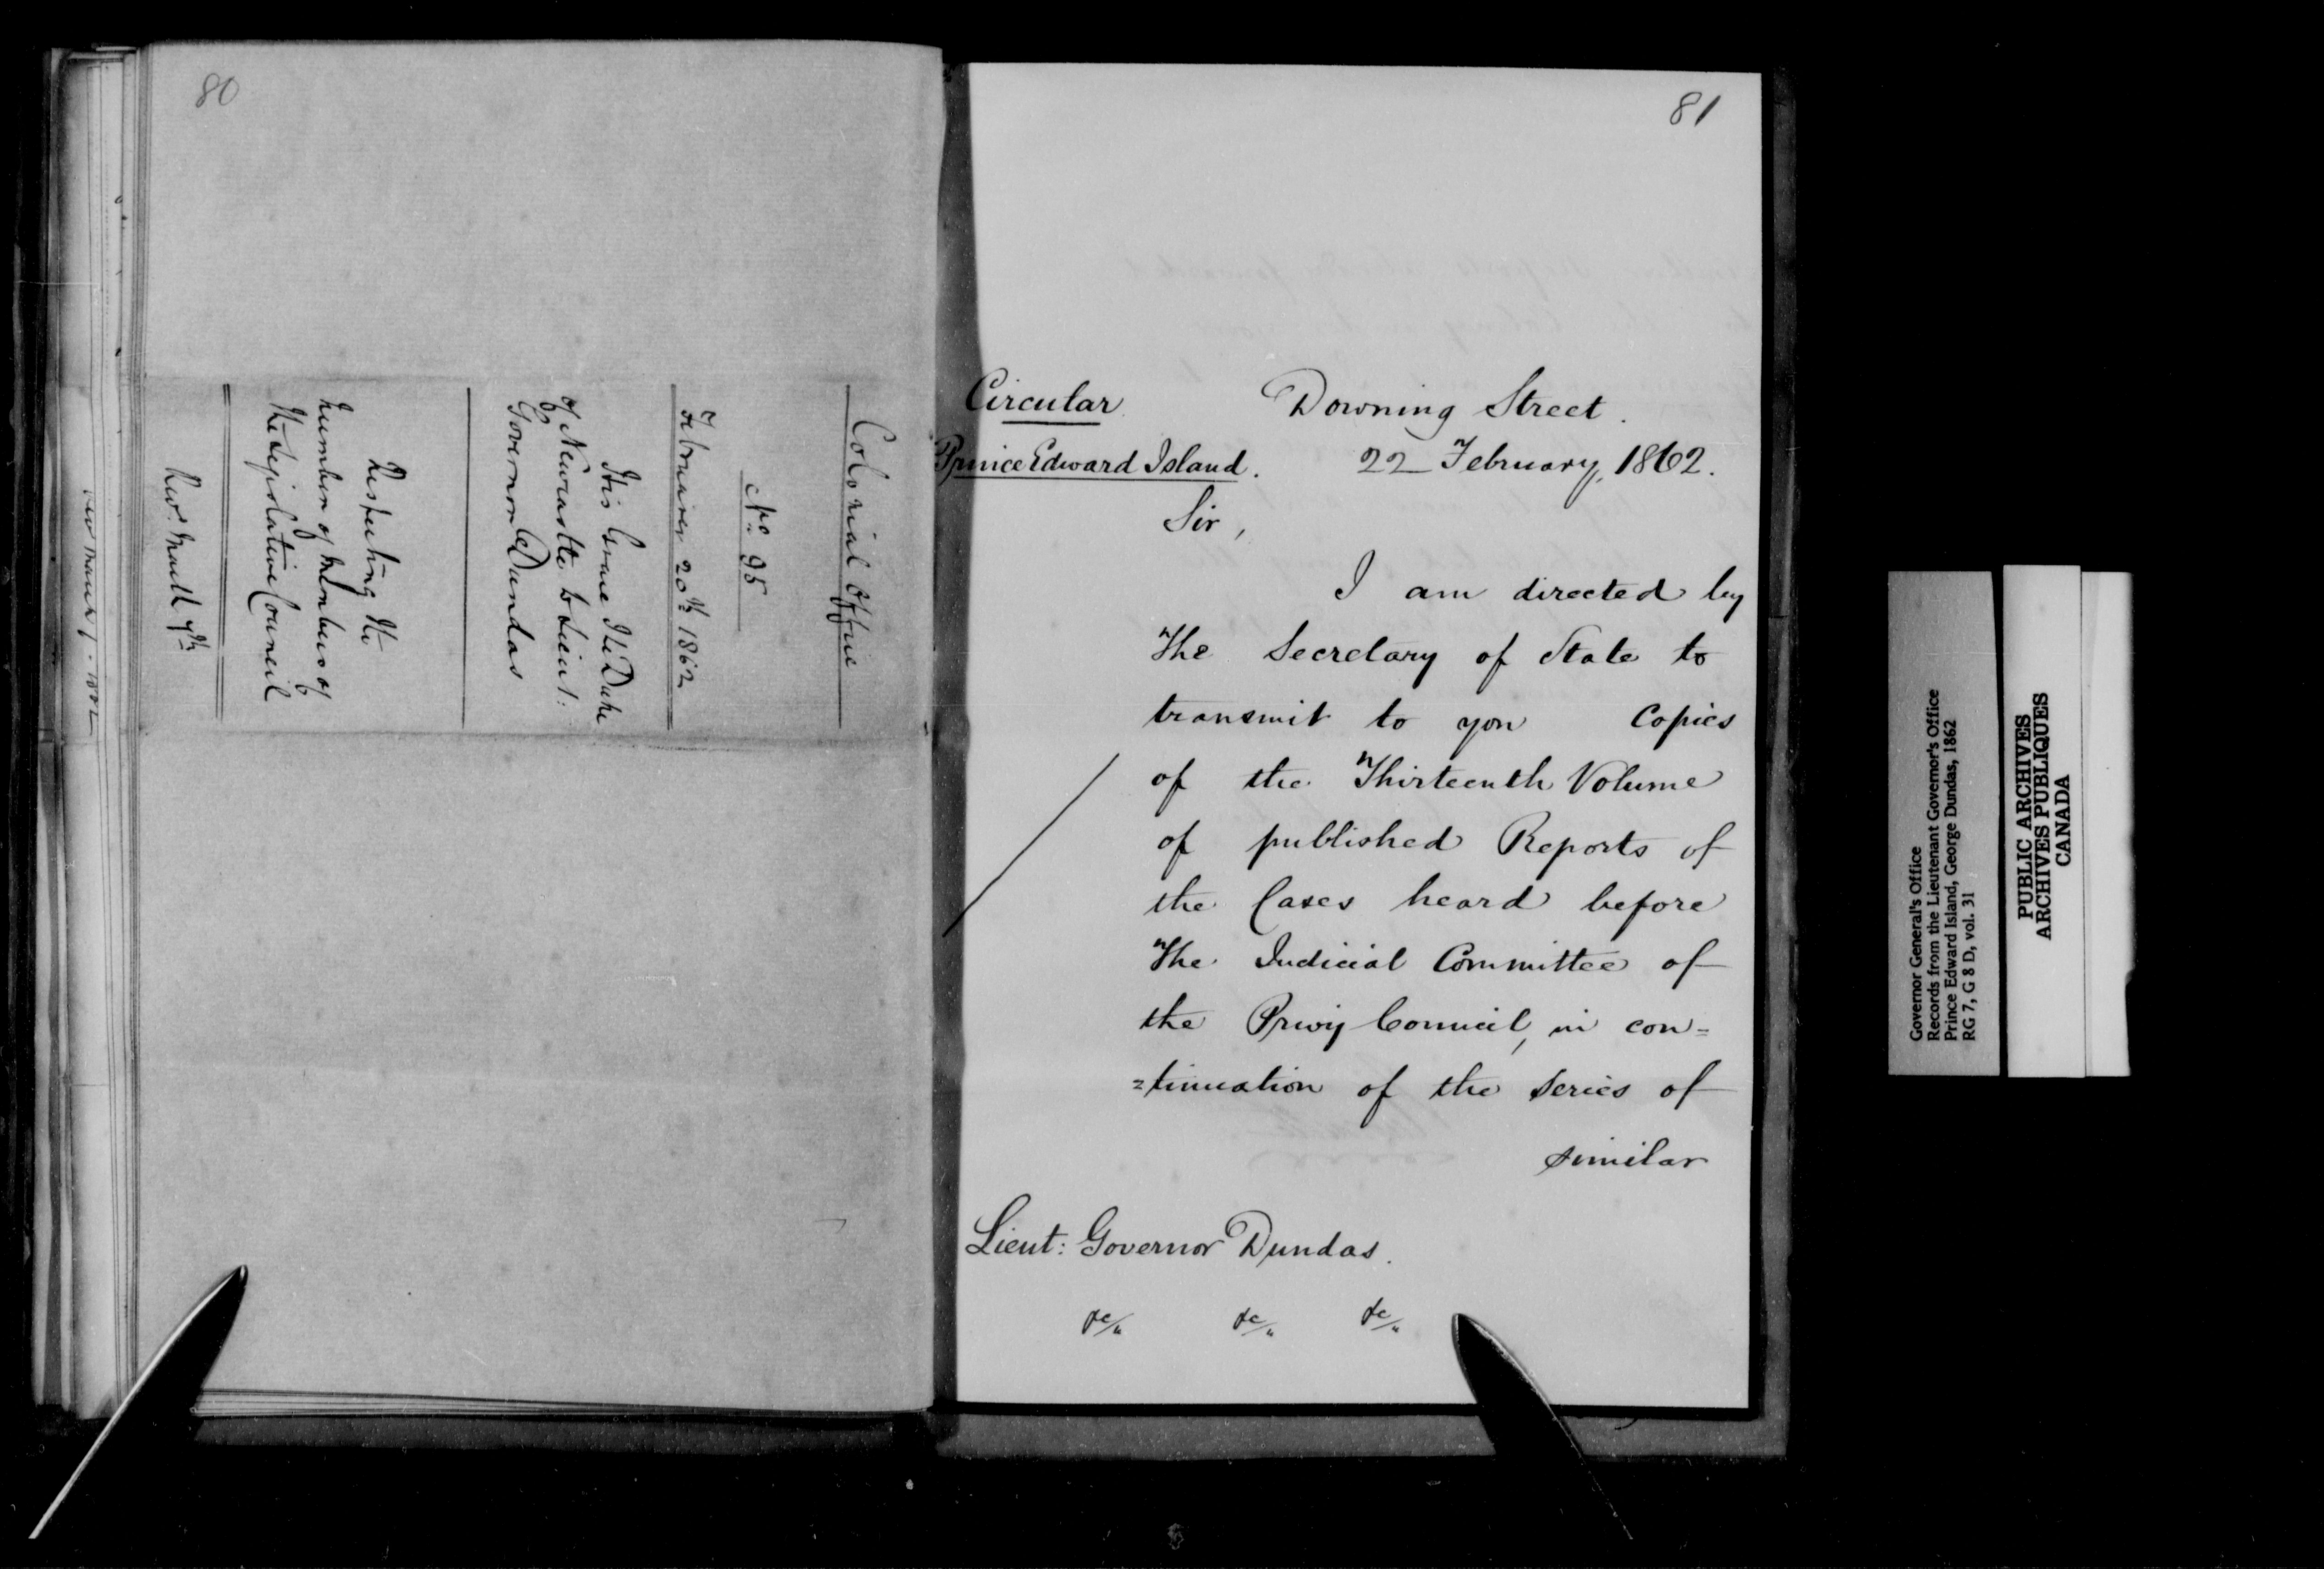 80
Colonial Office
No. 95
February 20th 1862
His Grace The Duke
of Newcastle to Lieut:
Governor Dundas
Respecting the
number of Members of
the Legislative Council
Rec. March 7th
81
Circular
Prince Edward Island.
Downing Street.
22 February, 1862.
Sir,
I am directed by
The Secretary of State to
transmit to you Copies
of the Thirteenth Volume
of published Reports of
the Cases heard before
The Judicial Committee of
the Privy Council, in con=
=tinuation of the series of
similar
Lieut: Governor Dundas.
&c/" &c/" &c/"
Governor General's Office
Records from the Lieutenant Governor's Office
Prince Edward Island, George Dundas, 1862
RG 7, G 8 D, vol. 31
PUBLIC ARCHIVES
ARCHIVES PUBLIQUES
CANADA